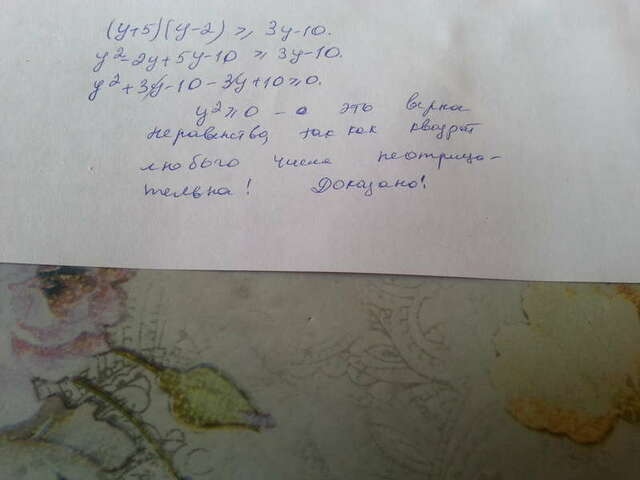 (y+5)(y-2) ≥ 3y-10.
y²-2y+5y-10 ≥ 3y-10.
y²+3y-10-3y+10≥0.
y²≥0 - это верна
неравенства, так как квадрат
любого числа неотрица-
тельна! Доказано!